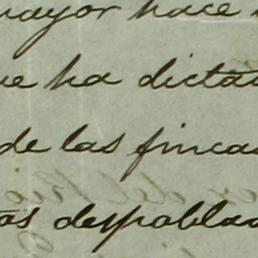 mayor hace
que ha dicta
de las fincas
as despobla